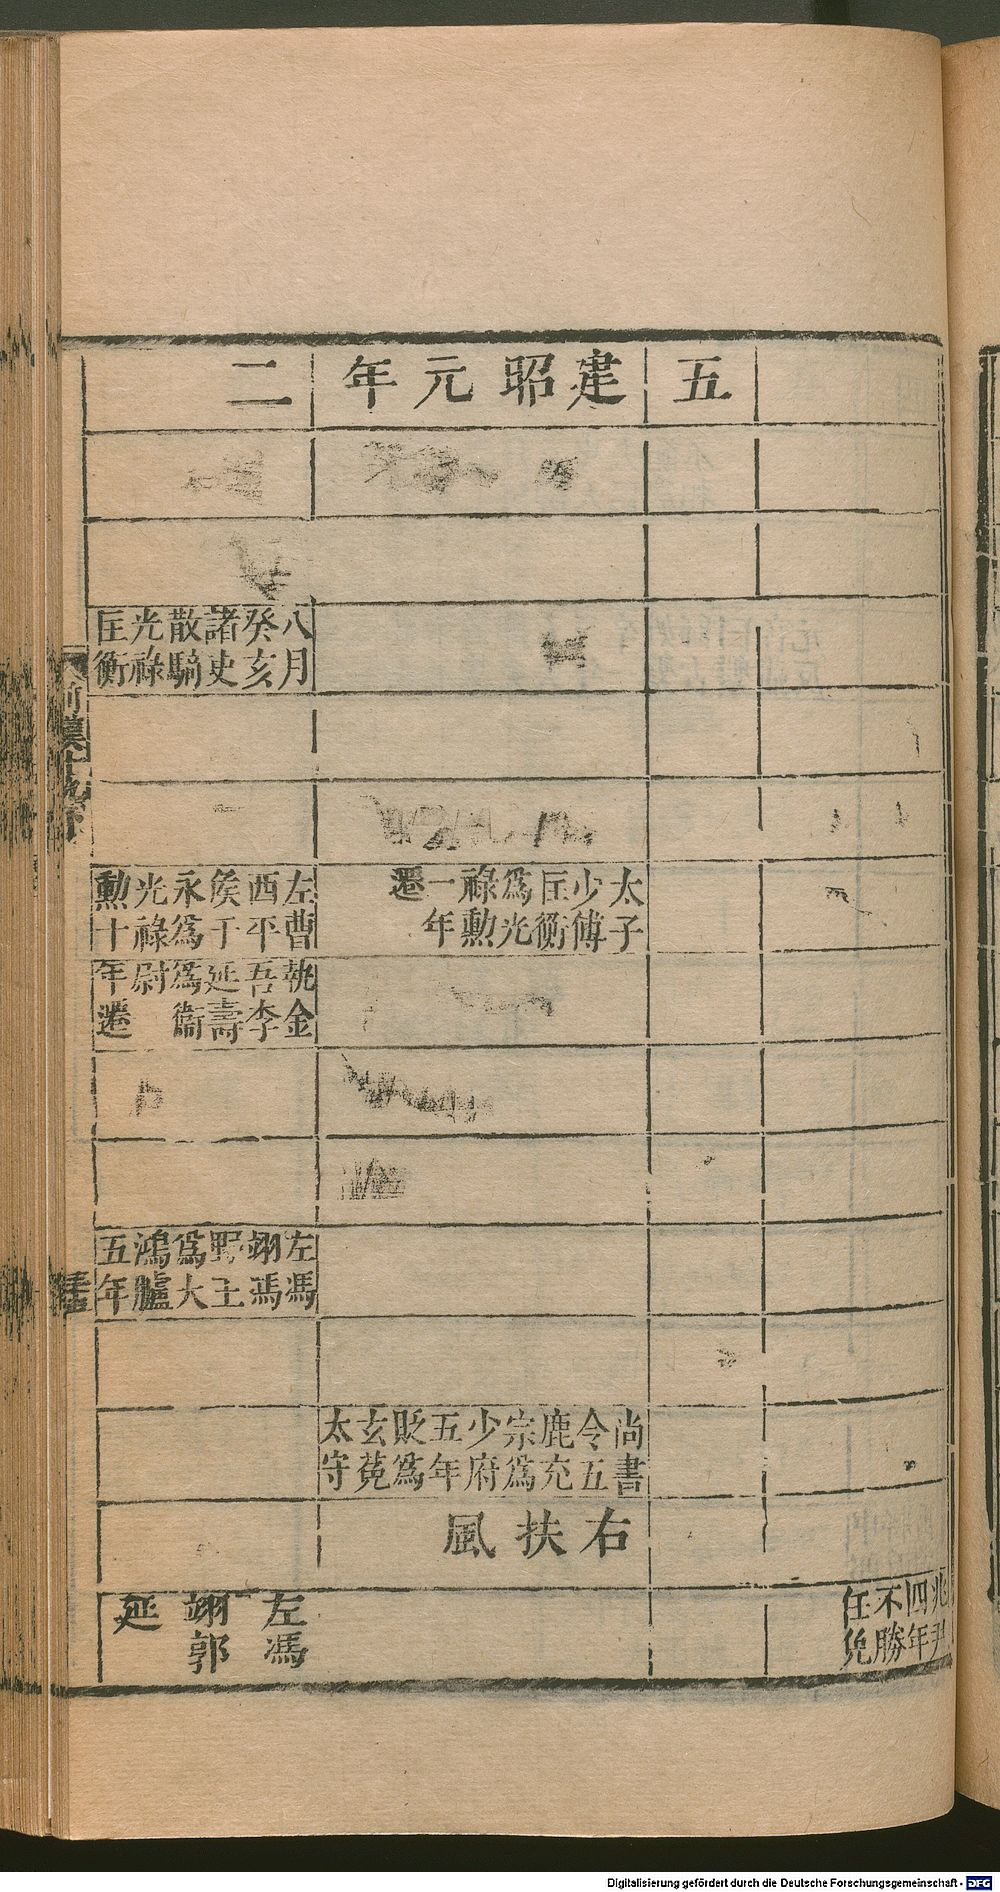 五
建昭元年
二
八月
癸亥
諸吏
散騎
光祿
匡衡
太子
少傅
匡衡
爲光
祿勲
一年
遷
左曹
西平
侯于
永爲
光祿
勲十
執金
吾李
延壽
爲衞
尉
年遷
左馮
翊馮
野王
爲大
鴻臚
五年
尚書
令五
鹿充
宗爲
少府
五年
貶爲
玄菟
太守
右扶風
兆尹
四年
不勝
任免
左馮
翊郭
延
前漢十九下
Digitalisierung gefördert durch die Deutsche Forschungsgemeinschaft - DFG